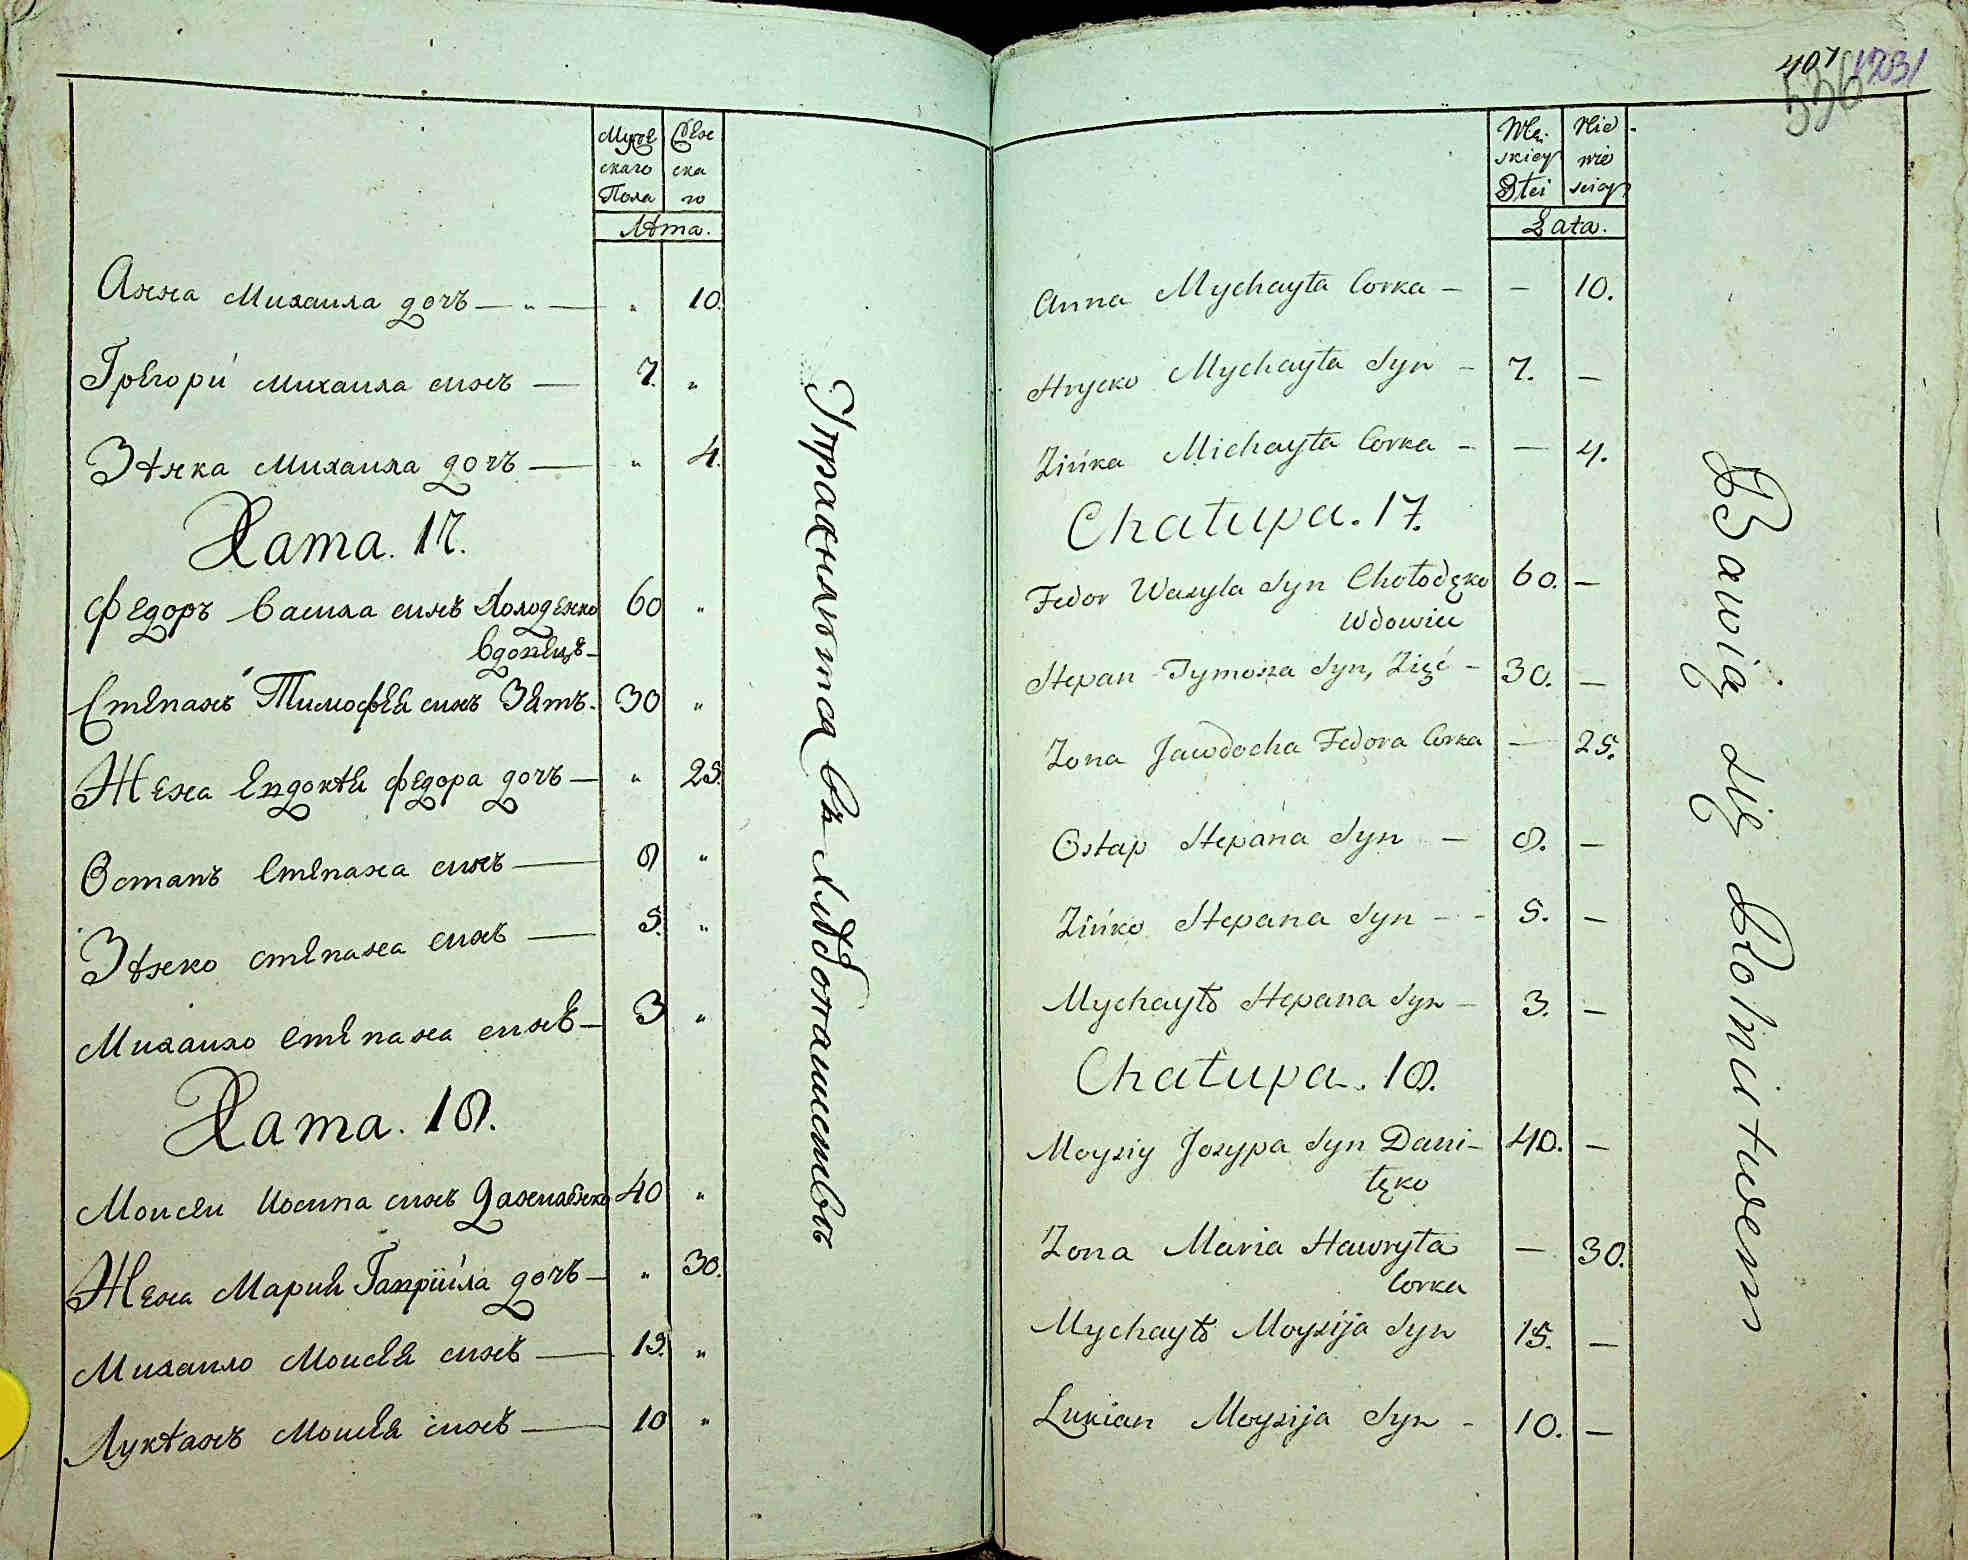 Муже Жен
скаго ска
Пола го
Лѣта.
Анна Михаила дочъ — „ — „ 10.
Грегори Михаила синъ — 7. „
Зѣнка Михаила дочъ — „ 4.
Хата. 17.
Федоръ Васила синъ Холоденко 60 „
вдовецъ —
Степанъ Тимофея синъ Зять. 30 „
Жена Евдокѣи Федора дочъ — „ 25.
Остапъ Степана синъ — 8 „
Зѣнко степана синъ — 5. „
Михаило степана синъ — 3 „
Хата. 18.
Моисеи Иосипа синъ Даниленко 40 „
Жена Марии Гавриила дочъ — „ 30.
Михаило Моисея синъ — 15. „
Лукѣанъ Моисея синъ — 10 „
Упражняются въ хлебопашествѣ
407 1231
536
Mę- Nie-
skiey wie
Płci sciey
Lata.
Anna Mychayła Corka — — 10.
Hrycko Mychayła Syn — 7. —
Zińka Michayła Corka — — 4.
Chałupa. 17.
Fedor Wasyla Syn Chołodęko 60. —
Wdowiec
Stepan Tymosza Syn, Zięć — 30. —
Zona Jawdocha Fedora Corka — 25.
Ostap Stepana Syn — 8. —
Zińko Stepana Syn - - 5. —
Mychayło Stepana Syn — 3. —
Chałupa. 18.
Moysiy Josypa Syn Dani- 40. —
łęko
Zona Maria Hawryła — 30.
Corka
Mychayło Moysija Syn 15. —
Lukian Moysija Syn - 10. —
Bawią się Rolnictwem